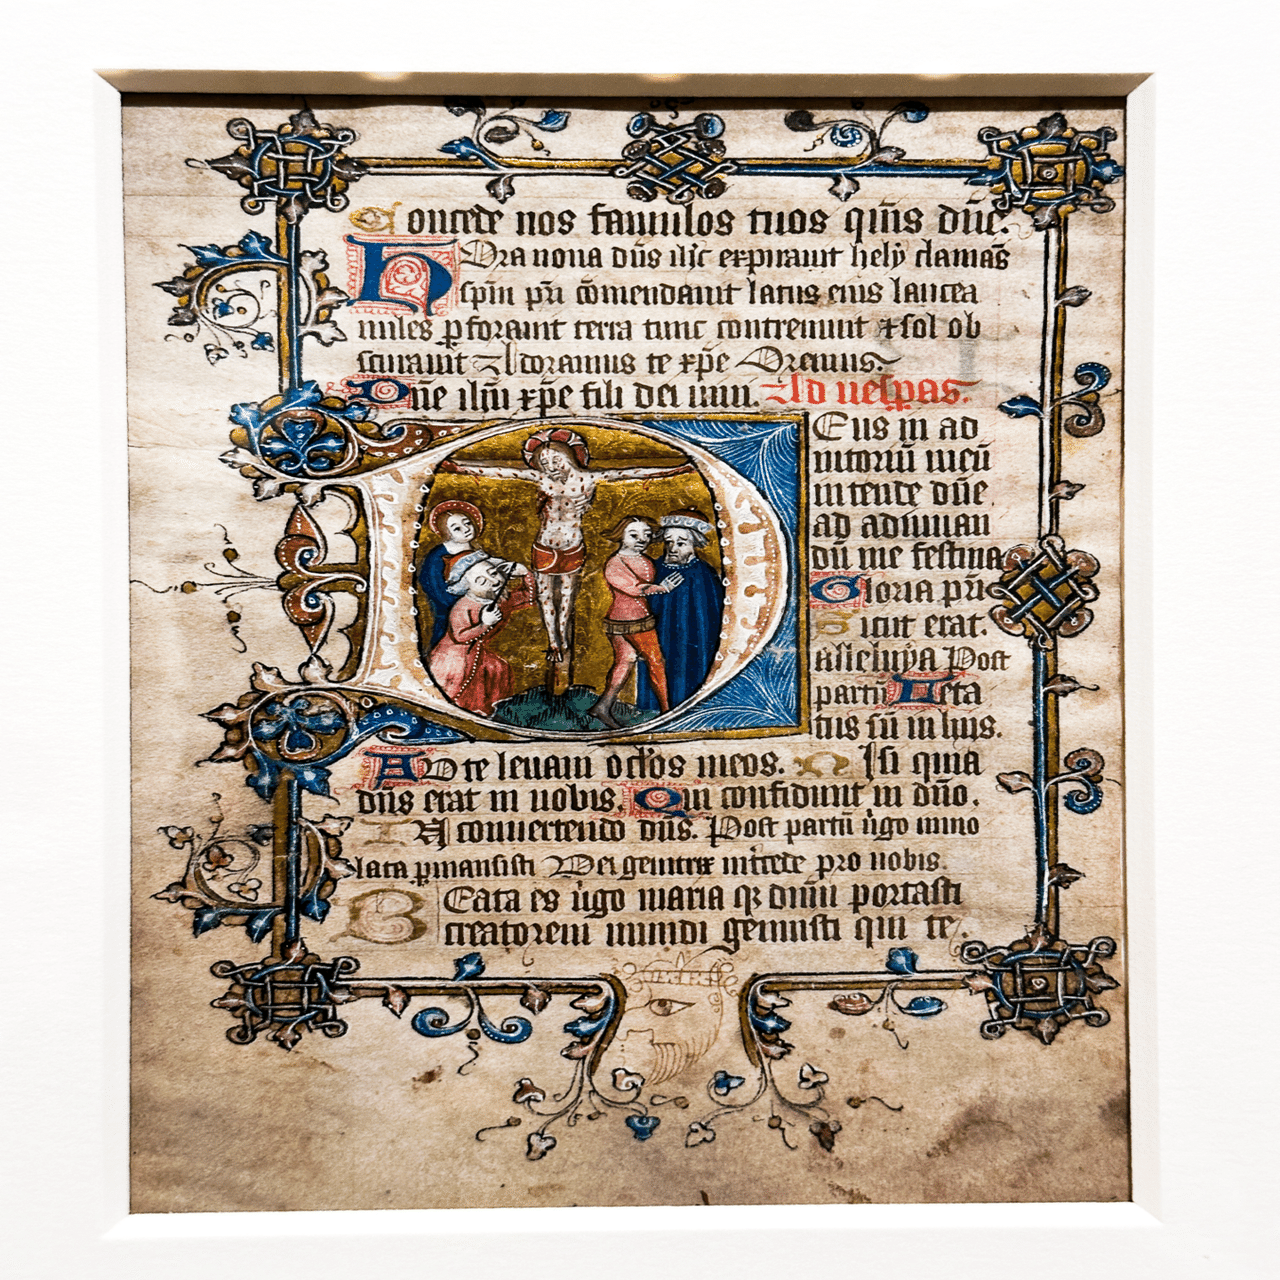 Concede nos famulos tuos qm̄s dn̄e.
Hora nona dn̄s ih̄c expirauit hely clamās
sp̄m pr̄i cōmendauit latus eius lancea
miles ꝑforauit terra tunc contremuit ⁊ sol ob
scurauit Adoramus te xp̄e Oremus.
Dn̄e ih̄u xp̄e fili dei uiui. Ad uesperas.
Deus in ad
iutoriū meū
intende dn̄e
ad adiuuan
dū me festina
Gloria pr̄i
Sicut erat.
alleluya Post
partū Leta
tus sū in hiis.
Ad te leuaui oc̄los meos. Nisi quia
dn̄s erat in nobis. Qui confidunt in dn̄o.
In conuertendo dn̄s. Post partū ūgo inuio
lata ꝑmansisti Dei genitrix int̄cede pro nobis.
Beata es ūgo maria q̄ dn̄m portasti
creatorem mundi genuisti qui te.